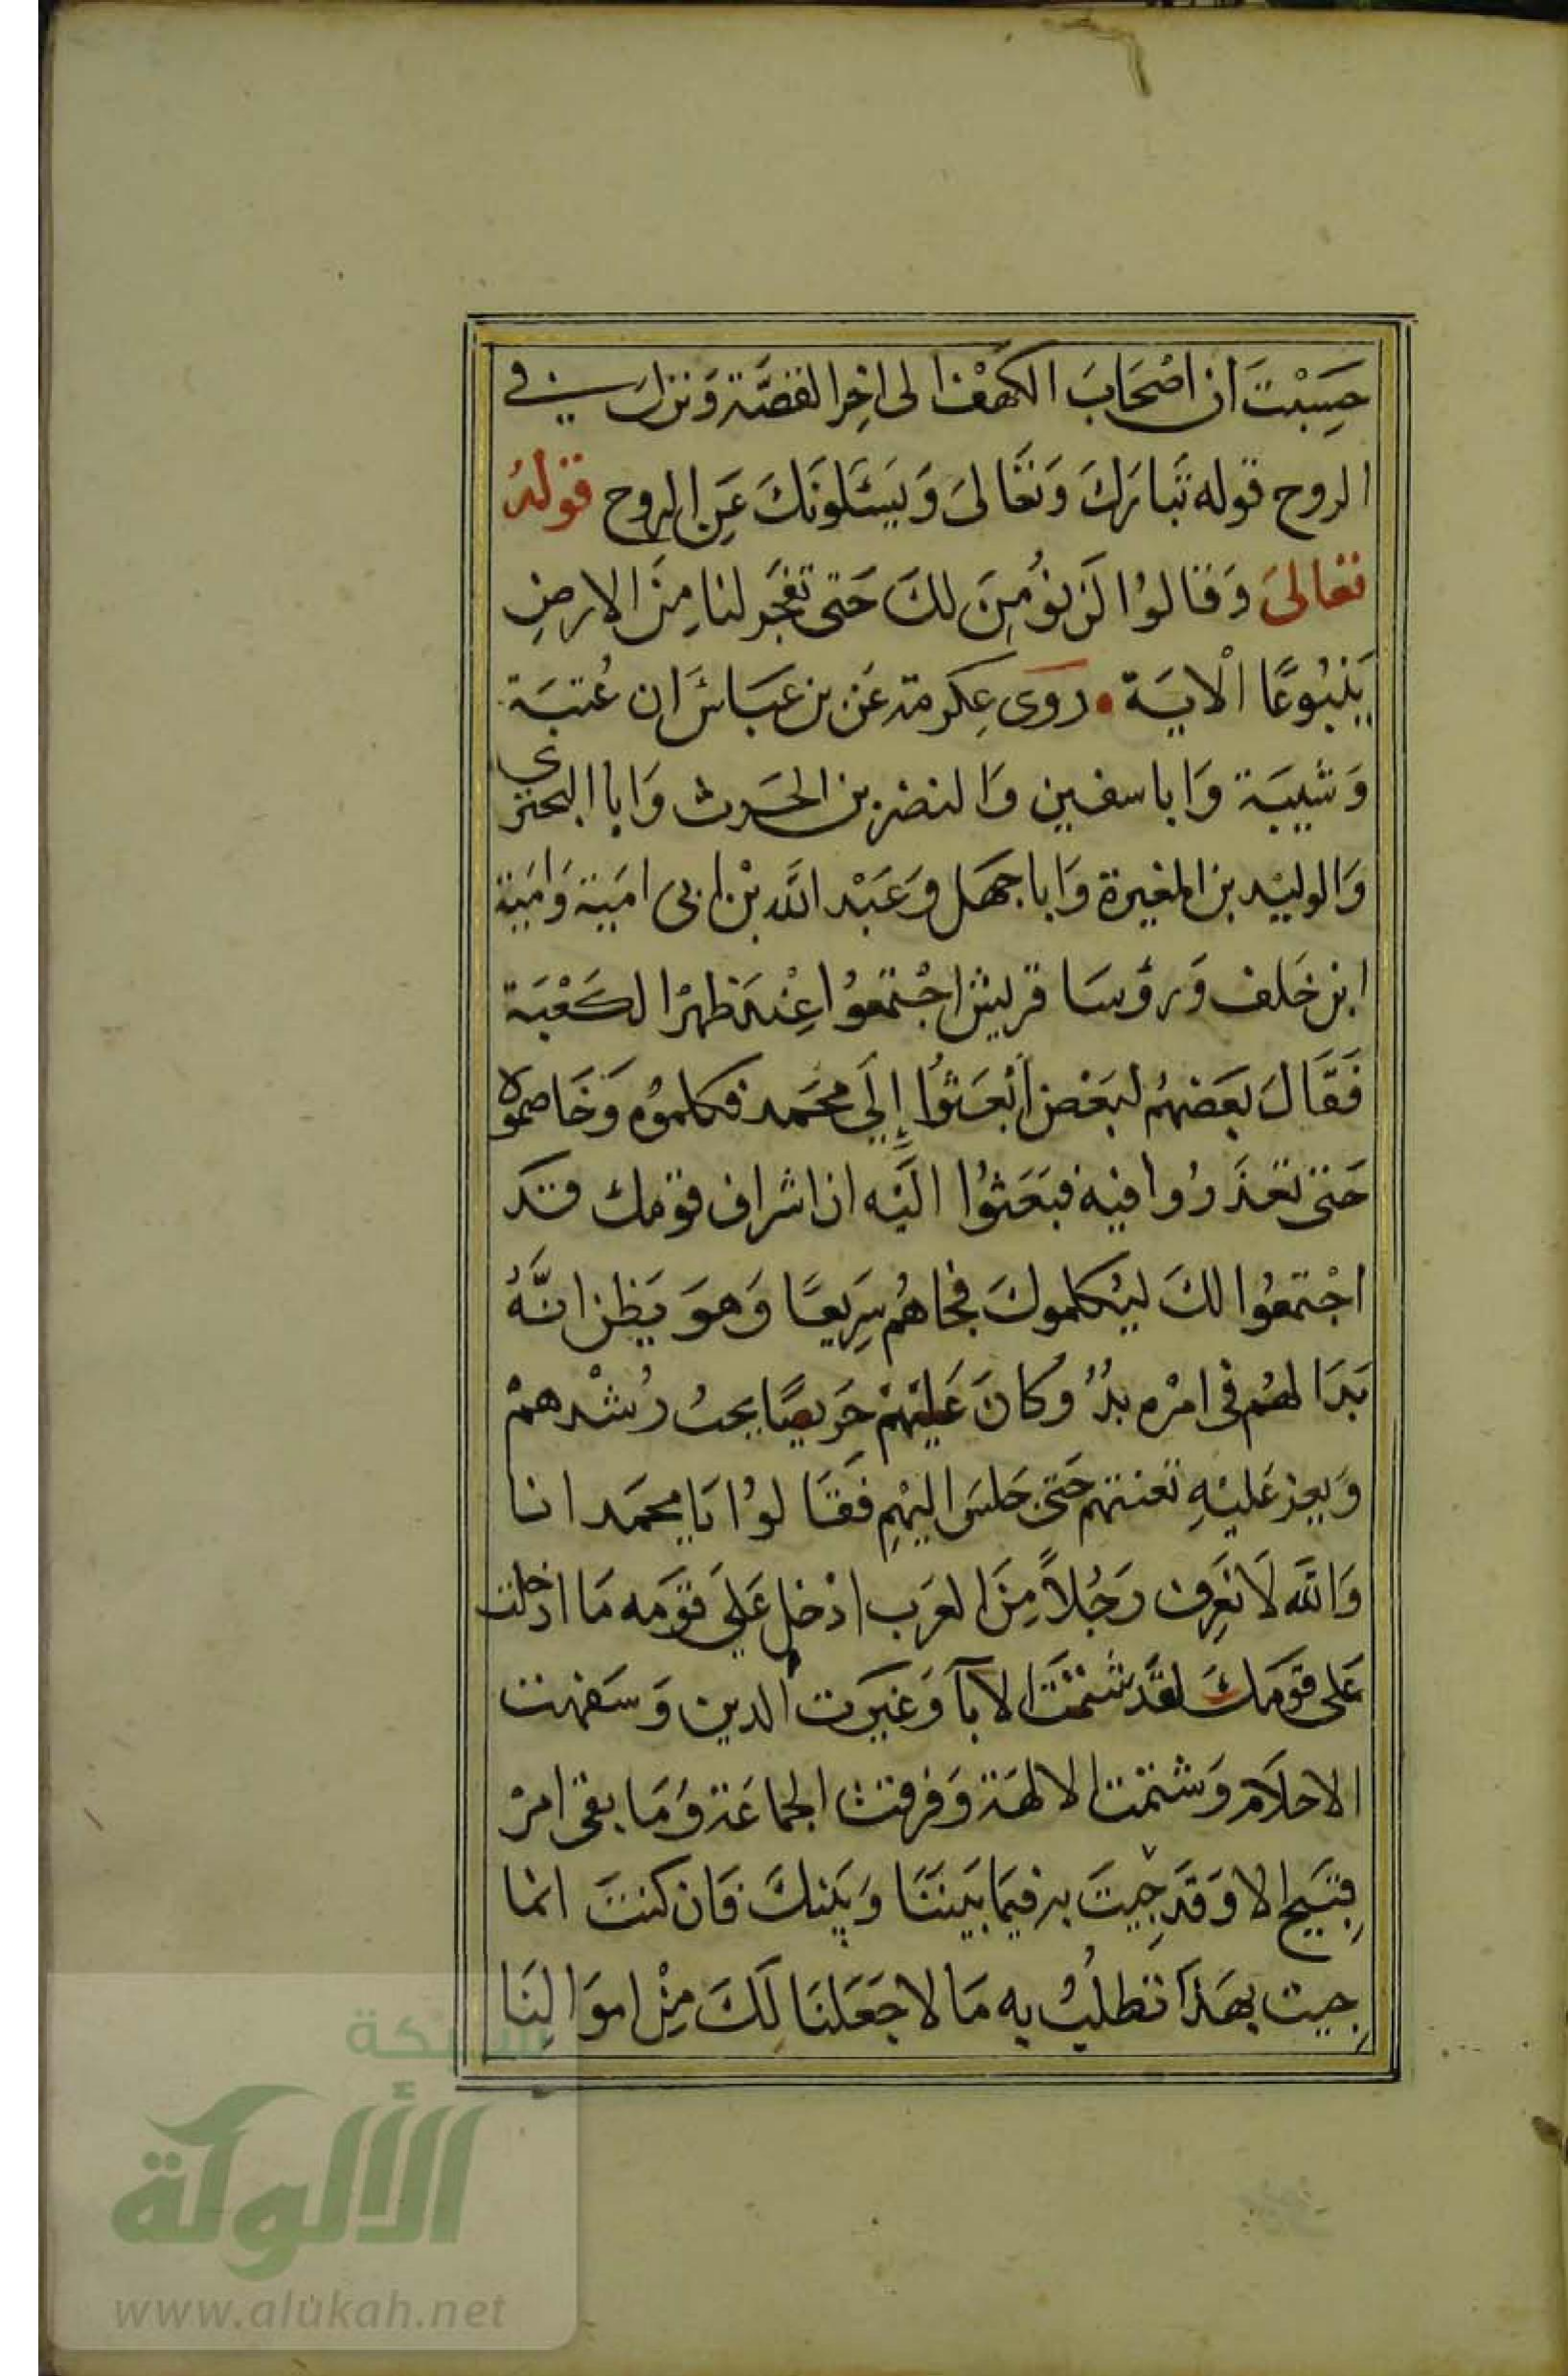 حَسِبْتَ أن اصْحَابَ الكهْف الى اخِرِ القصَّة وَنزلَ في
الروح قوله تَبارَكَ وَتَعَالىَ وَيَسْئَلونَكَ عَنِ الروح قولهُ
تعالىَ وَقالوُا لَن نؤُمِنَ لكَ حَتى تفْجُرَ لنا مِنَ الارضِ
يَنبُوعًا الْايَة • رَوَى عِكرمة عَن بن عَبَاسٍ ان عُتبَة
وَشَيبَة وَابا سفين وَالنضر بن الحَرث وَابا البحتري
وَالوليْد بن المغيرة وَابا جهَل وَعَبْد الله بْن ابى اميَة وَاميَة
ابن خَلف وَرؤسَا قريش اجْتمعوُا عِنْدَ ظهْر الكَعْبَة
فَقَالَ بَعَضهُم لبَعْض ابْعَثُوا إِلَى محَمد فكلموُه وَخَاصموه
حَتى تعْذرُوا فيْه فبَعَثوُا اليْه ان اشراف قوْمك قد
اجْتمعُوا لكَ ليُكلموكَ فجاهُم سَرِيعًا وَهوَ يَظن انَّهُ
بَدَا لهُم فى امْره بدُوٌ وَكانَ عَليْهمْ حَرِيصًا يحبُ رُشْدهمْ
وَيعز عَليْهِ تعنتهم حَتى جَلسَ اليْهِم فَقالوُا يَا محَمد انا
وَالله لاَ نَعِرف رَجُلاً مِنَ العَرَب ادْخل عَلَى قوْمه مَا ادخلت
عَلى قوْمكَ لقَد شتمْتَ الابآ وَعَيَبت الدين وَسَفهت
الاحلاَم وَشتمْت الالهَة وَفرقت الجماعَة وَمَا بقى امرْ
قِبَيح الا وَقدَ جِيتَ به فيمَا بَيننَا وَبَينكَ فَان كنتَ انما
جِيت بهَذا تطلبُ به مَالا جَعَلنَا لَكَ مِنْ اموَالِنَا
شبكة
الألوكة
www.alukah.net